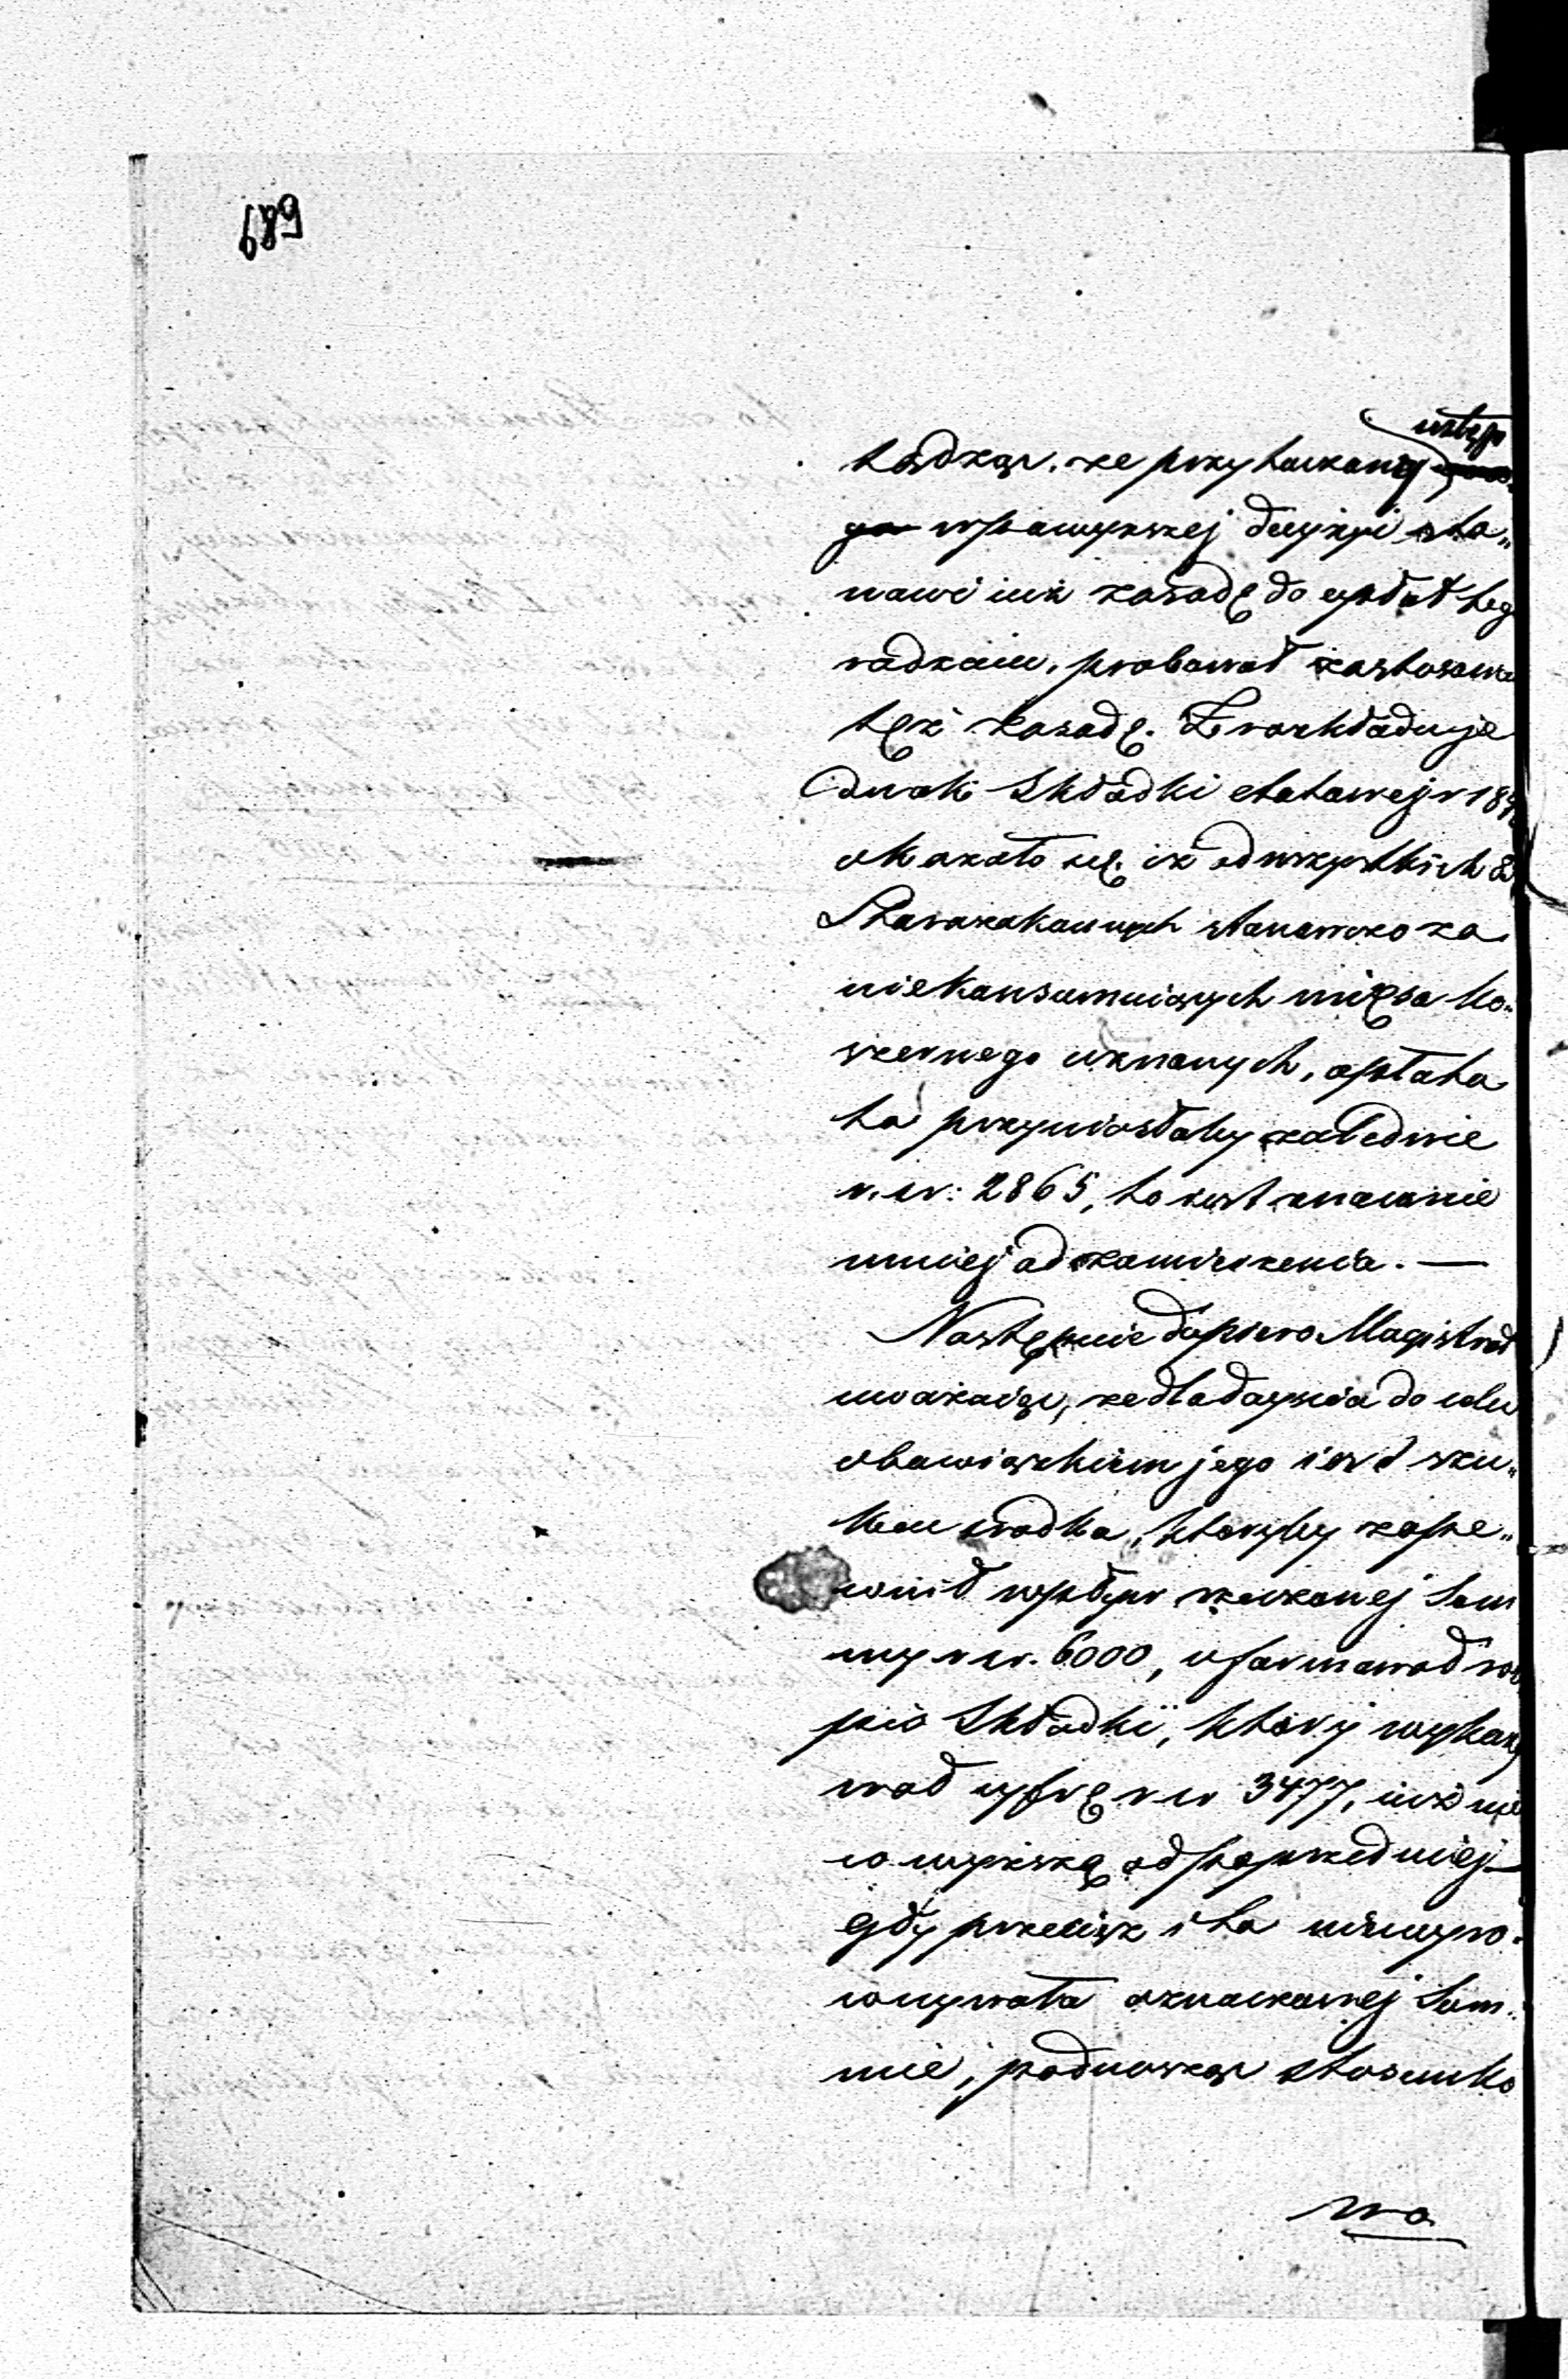 689
ustęp
sądząc, że przytaczany
wpowyższej decyzyi sta„
nowi już zasadę do opłat teg
rodzaiu, probował zastosowa
też zasadę. Z rozkładu je
dnak Składki etatowej r 184
okazało się, iż od wszystkich
Starozakonnych stanowczo za
niekonsumuiących mięsa ko„
szernego uznanych, opłata
ta przyniosłaby zaledwie
r. sr: 2865, to iest znacznie
mniej od zamierzenia. —
Następnie dopiero Magistrat
uważaiąc, że dla dojścia do celu
obowiązkiem jego iest szu„
kać srodka, któryby zape„
wnił wpływ rzeczonej Sum
my r sr. 6000, uformował roz
pis Składki, który wykazy
wał cyfrę r sr 3477, iuż nie
co wyższą od poprzedniej —
gdy przecież i ta niewyro„
wnywała oznaczonej Sum„
mie, podnosząc stosunko
wo